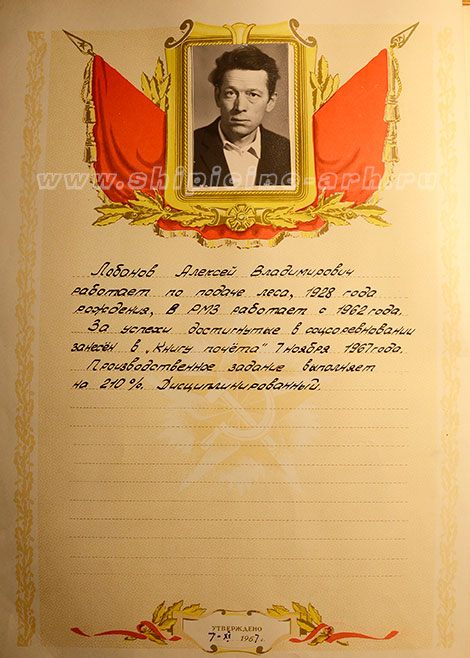 www.shipicino-arh.ru
Лобанов Алексей Владимирович
работает по подаче леса, 1928 года
рождения, В РМЗ работает с 1962 года.
За успехи достигнутые в соцсоревновании
занесён в „Книгу почёта" 7 ноября 1967 года.
Производственное задание выполняет
на 210 %. Дисциплинированный.
УТВЕРЖДЕНО
7-XI 1967 г.